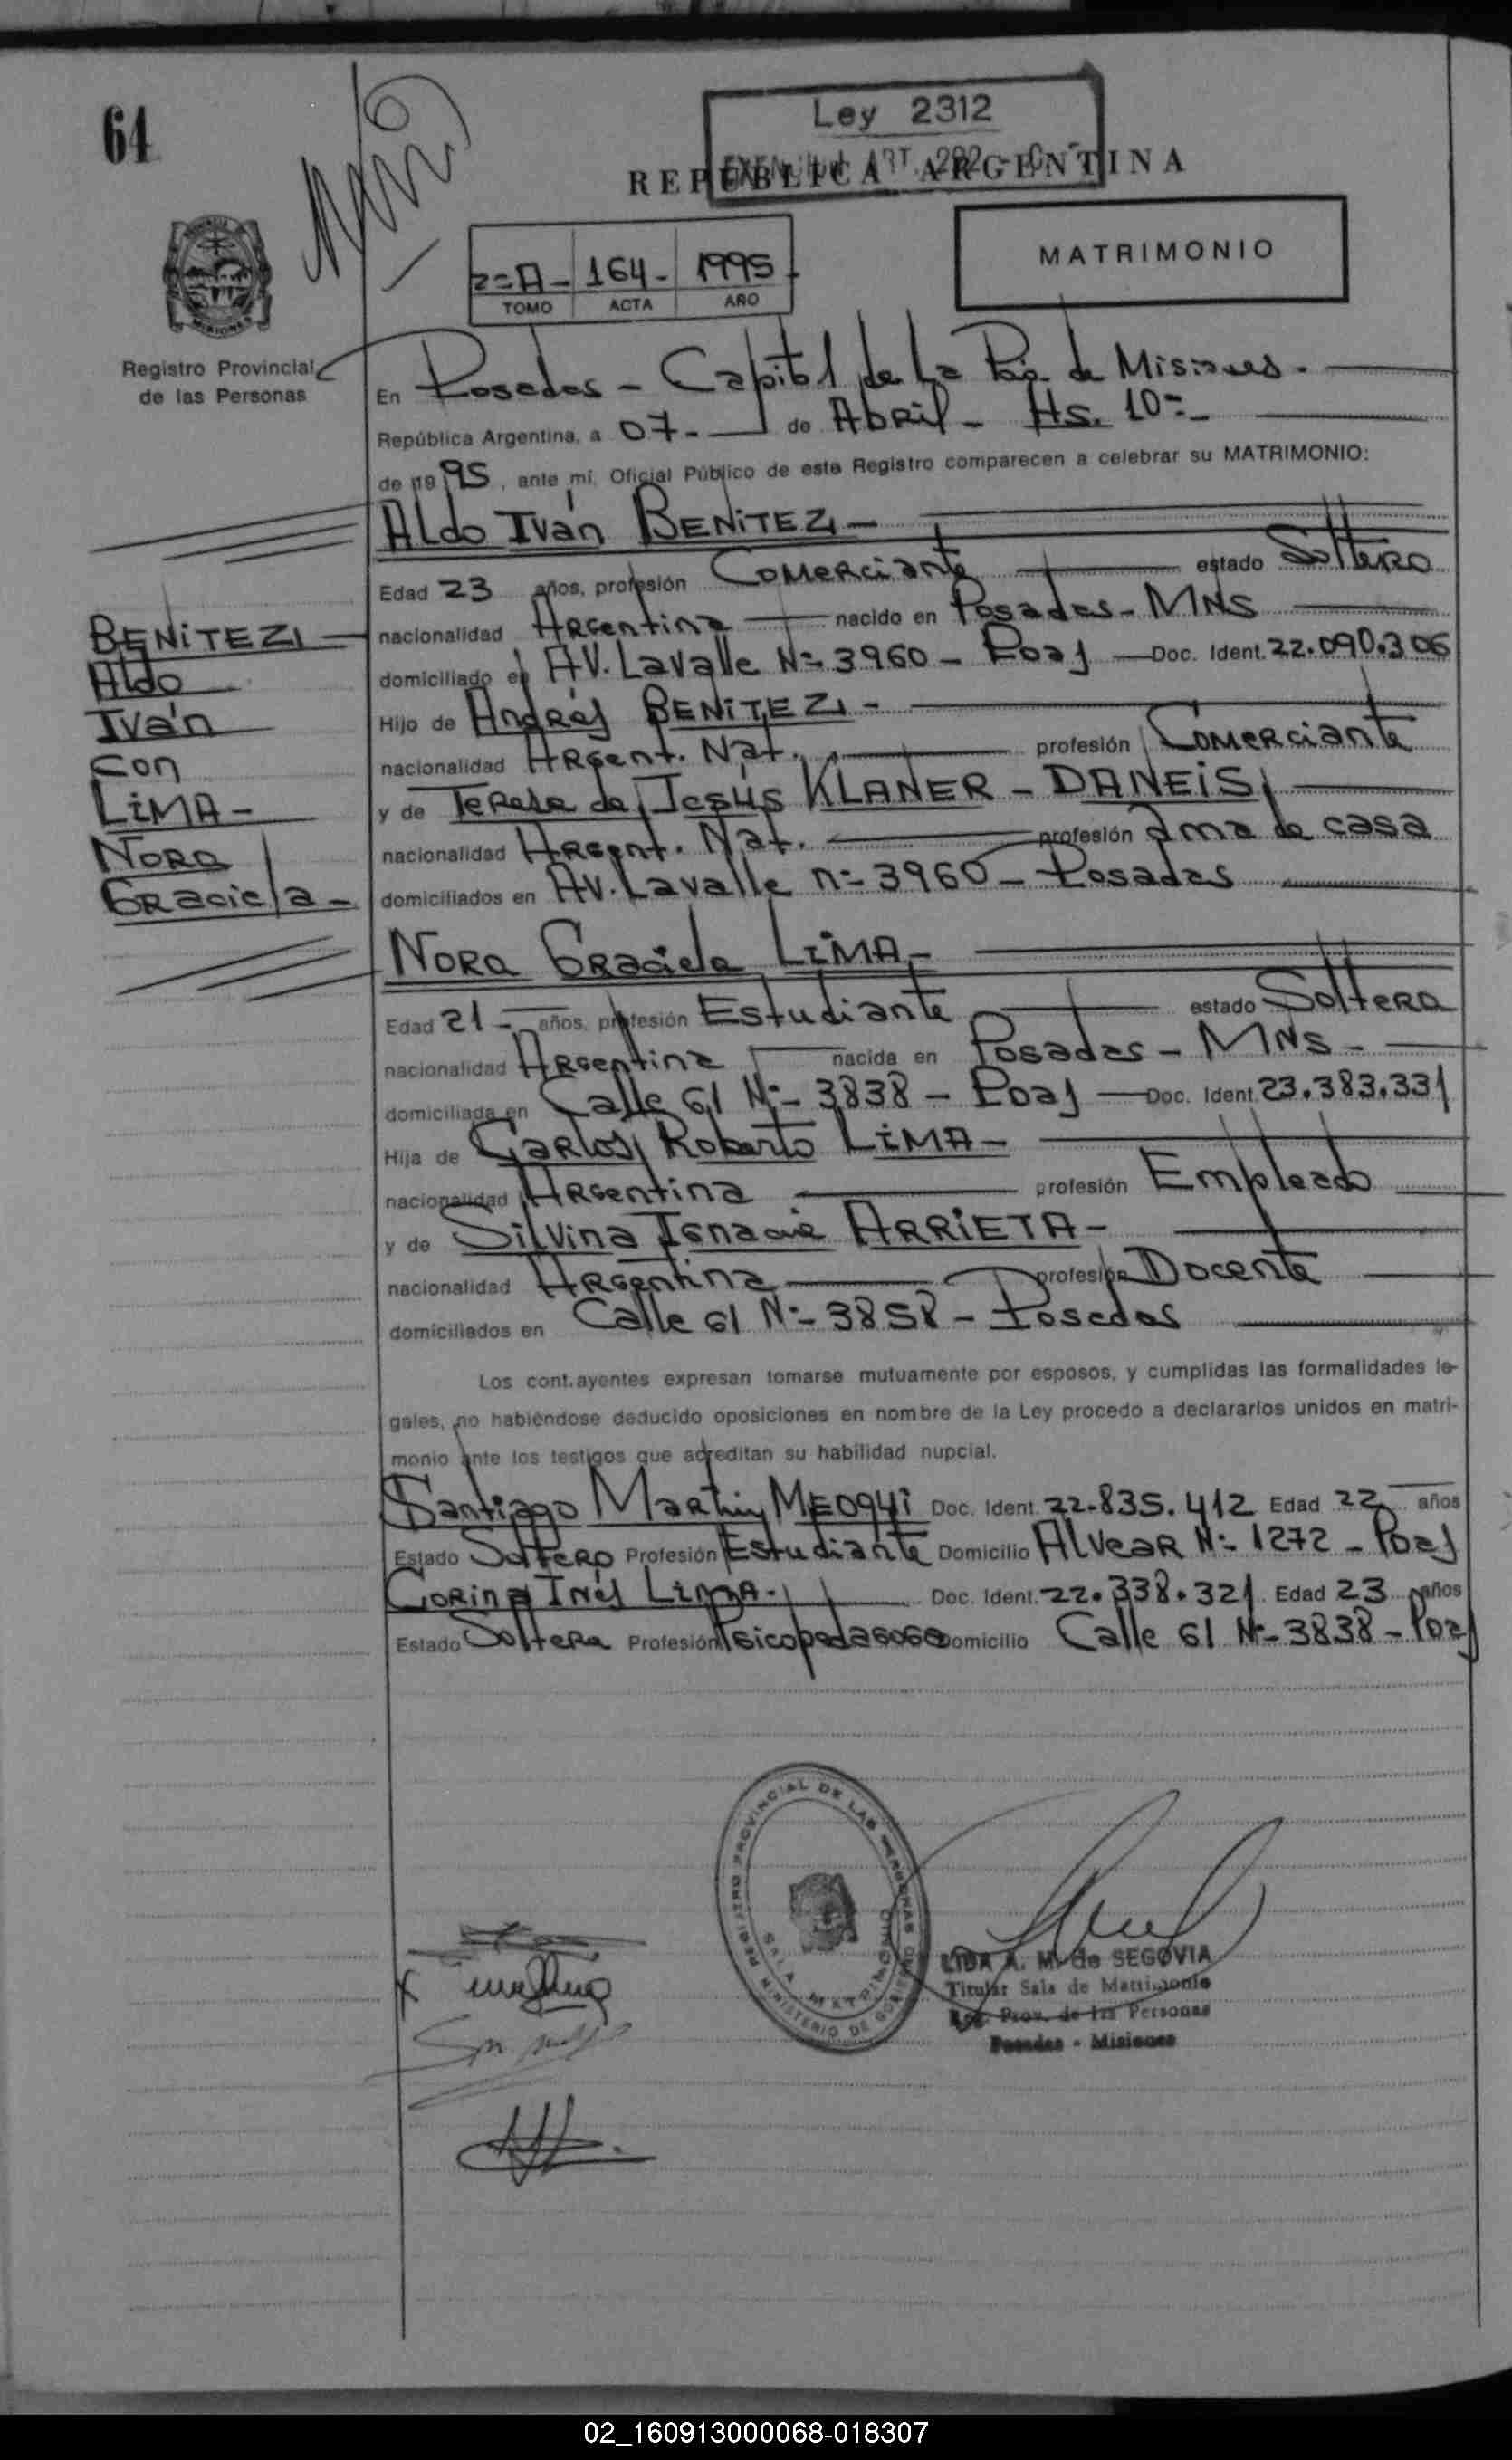 64
Ley 2312
ART. 292
REPUBLICA ARGENTINA
MATRIMONIO
2=A- 164- 1995
TOMO ACTA AÑO
Registro Provincial
de las Personas
En Posadas - Capital de La Pcia. de Misiones.
República Argentina, a 07.- de Abril - Hs. 10=-
de 19 95, ante mí, Oficial Público de este Registro comparecen a celebrar su MATRIMONIO:
Aldo Iván BENITEZ -
Edad 23 años, profesión Comerciante estado Soltero
nacionalidad Argentina nacido en Posadas - MNS
domiciliado en AV. Lavalle Nº 3960 - Pdas Doc. Ident. 22.090.306
Hijo de Andrés BENITEZ -
nacionalidad Argent. Nat. profesión Comerciante
y de Teresa de Jesús KLANER - DANEIS
nacionalidad Argent. Nat. profesión ama de casa
domiciliados en AV. Lavalle nº 3960 - Posadas
BENITEZ
Aldo
Iván
con
LIMA -
NORA
Graciela -
NORA Graciela LIMA -
Edad 21- años, profesión Estudiante estado Soltera
nacionalidad Argentina nacida en Posadas - MNS -
domiciliada en Calle 61 Nº 3838 - Pdas Doc. Ident. 23.383.331
Hija de Carlos Roberto LIMA -
nacionalidad Argentina profesión Empleado
y de Silvina Ignacia ARRIETA -
nacionalidad Argentina profesión Docente
domiciliados en Calle 61 Nº 3858 - Posadas
Los cont.ayentes expresan tomarse mutuamente por esposos, y cumplidas las formalidades le-
gales, no habiéndose deducido oposiciones en nombre de la Ley procedo a declararlos unidos en matri-
monio ante los testigos que acreditan su habilidad nupcial.
Santiago Martin Doc. Ident. 22.835.412 Edad 22 años
Estado Soltero Profesión Estudiante Domicilio Alvear Nº 1272 - Pdas
Corina Inés LIMA - Doc. Ident. 22.338.321 Edad 23 años
Estado Soltera Profesión Psicopedagoga Domicilio Calle 61 Nº 3838 - Pdas
REGISTRO PROVINCIAL DE LAS PERSONAS
SALA MATRIMONIO
MINISTERIO DE GOBIERNO
LIDA A. M. de SEGOVIA
Titular Sala de Matrimonio
Reg. Prov. de las Personas
Posadas - Misiones
02_160913000068-018307